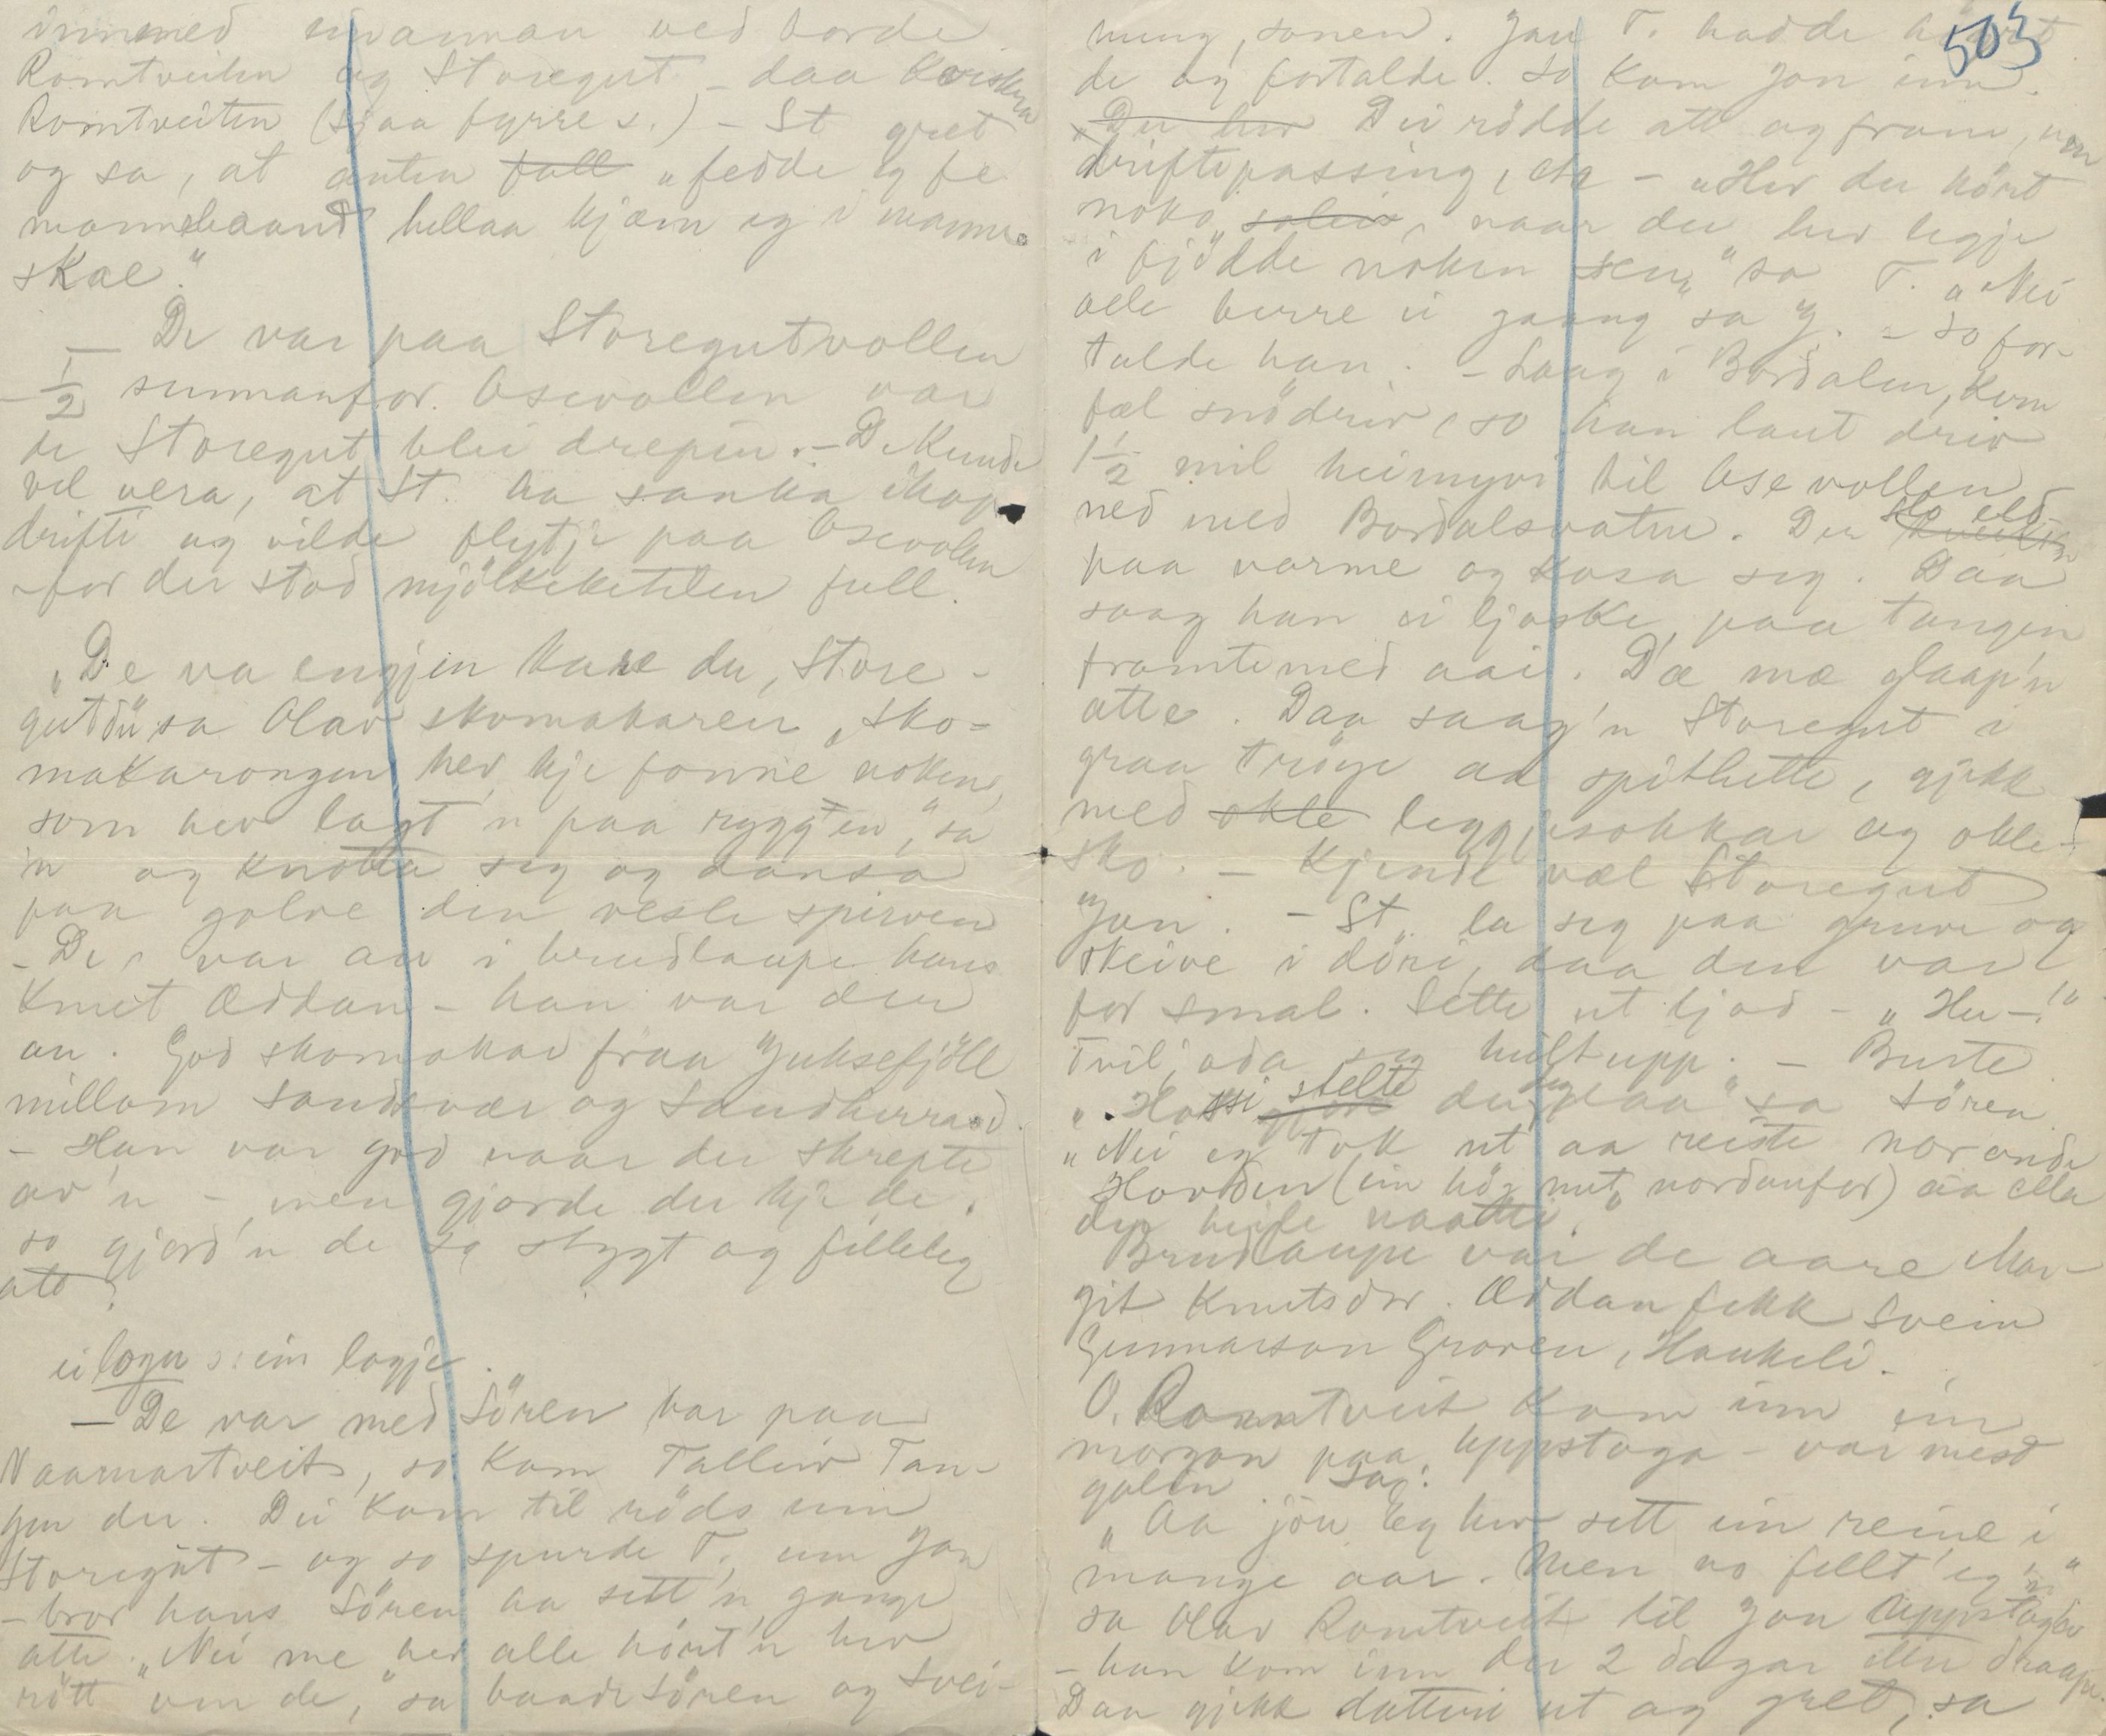 innmed einannan ved borde
Romtveiten og Storegut – daa
Romtveiten (sjaa fyrre s.) – St gret
og sa, at anten fall „fedde eg fe
mannebaand hellaa kjæm eg i manne-
skae."
– De var paa Storegutvollen
– 1/2 sunnanfor Osevollen var
de Storegut blei drepin. – De kunde
vel vera, at St. ha sanka ihop
drifti og vilde flytje paa Osevollen
– for der stod mjölkeketelen full.
„De va engjen kare du, Store-
gut du" sa Olav skomakaren „sko-
makarongen hev kje fonne noken,
som hev lagt'n paa ryggen," sa
'n og knotta seg og dansa
paa golve den vesle spirven
– De var au i brudlaupe hans
Knut Øddan – han var der
au. God skomakar fraa Juksefjöll
millom Sandsvær og Sandherrad.
– Han var god naar du skrepte
av'n –, men gjorde du kje de,
so gjord'n de so stygt og filleleg
att
ei logu : ein logje.
– De var med Sören var paa
Naamartveit, so kom Talleiv Tan-
gen der. Dei kom til röds um
Storegut – og so spurde T. um Jon
– bror hans Sören ha sett'n gange
atte. „Nei me hev alle hört'n hev
rött um de," sa baade Sören og Svei-
nung, sonen. Jau T. hadde hört
503
de og fortalde. So kom Jon inn.
„Du hev Dei rödde att og fram, um
driftepassing, etc – „Hev du hört
noko soleis, naar du hev legje
i fjödde noken sen," sa T. „Nei
alle berre ei gaang sa J. – So for-
talde han. – Laag i Bordalen, kom
fæl snödriv, so han laut driv
1 1/2 mil heimyvi til Osevollen
ned med Bordalsvatne. Der slo eld
paa varme og kosa seg. Daa
saag han ei ljoske paa tangen
framte med aai. Dæ mæ glaap'n
atte. Daa saag'n Storegut i
graa tröye ad spithette, gjekk
med okle leggjesokkar og okle-
sko. – Kjende væl Storegut
Jon. – St. la seg paa gruve og
skeive i döri, daa den var
for smal. Sette ut ljod – „Hu –!"
Tvil, ada seg hüllt upp. – Burte
„Hossi stelte du deg daa" sa Sören
„Nei eg tok ut aa reiste norande
Hovden (ein hög nut nordanfor) aa ella
deg heile naatti."
Brudlaupe var de aare Mar-
git Knutsdtr. Øddan fekk Svein
Gunnarson Groven, Haukeli.
O. Romtveit kom inn ein
morgon paa Uppstoga – var mest
galen. Sa:
„Aa jöu eg hev sett ein reine i
mange aar. Men no fellt'eg 'n"
sa Olav Romtveit til Jon Uppstogo
– han kom inn der 2 dagar etter draape.
Daa gjekk dotteri ut og gret, sa